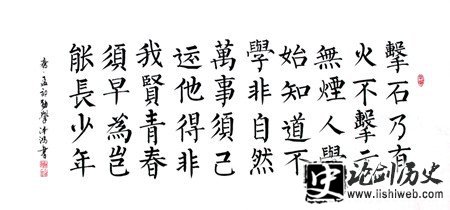 擊石乃有
火不擊元
無煙人學
始知道不
學非自然
萬事須己
运他得非
我賢青春
須早為岂
能長少年
孟郊勸學
書
史 论剑历史
www.lishiweb.com